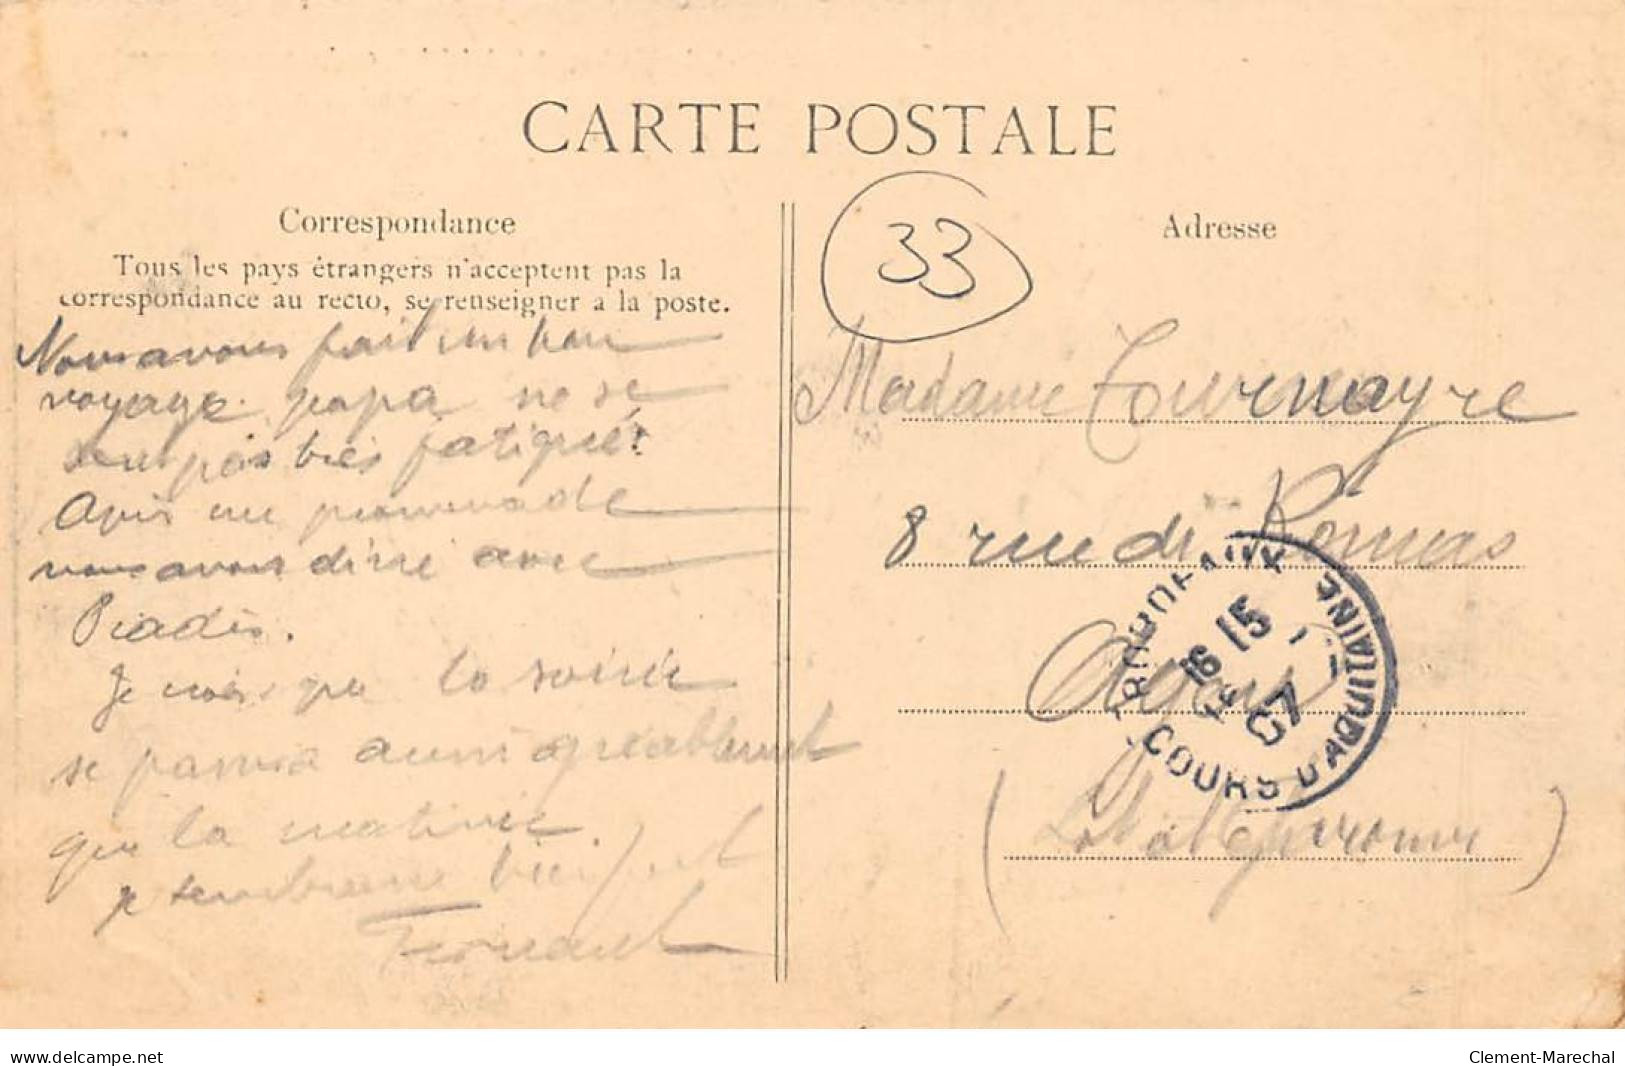 CARTE POSTALE
Correspondance
Tous les pays étrangers n'acceptent pas la
correspondance au recto, se renseigner a la poste.
Nous avons fait un bon
voyage. papa ne se
sent pas très fatigué.
Après une promenade
nous avons diné avec
Piadès.
Je crois que la soirée
se passera aussi agréablement
que la matinée.
Je t'embrasse bien fort
Fernand
33
Adresse
Madame Tournayre
8 rue de Romas
Agen
(Lot et Garonne)
BORDEAUX
COURS D'AQUITAINE
16 15
07
delcampe.net
Clement-Marechal